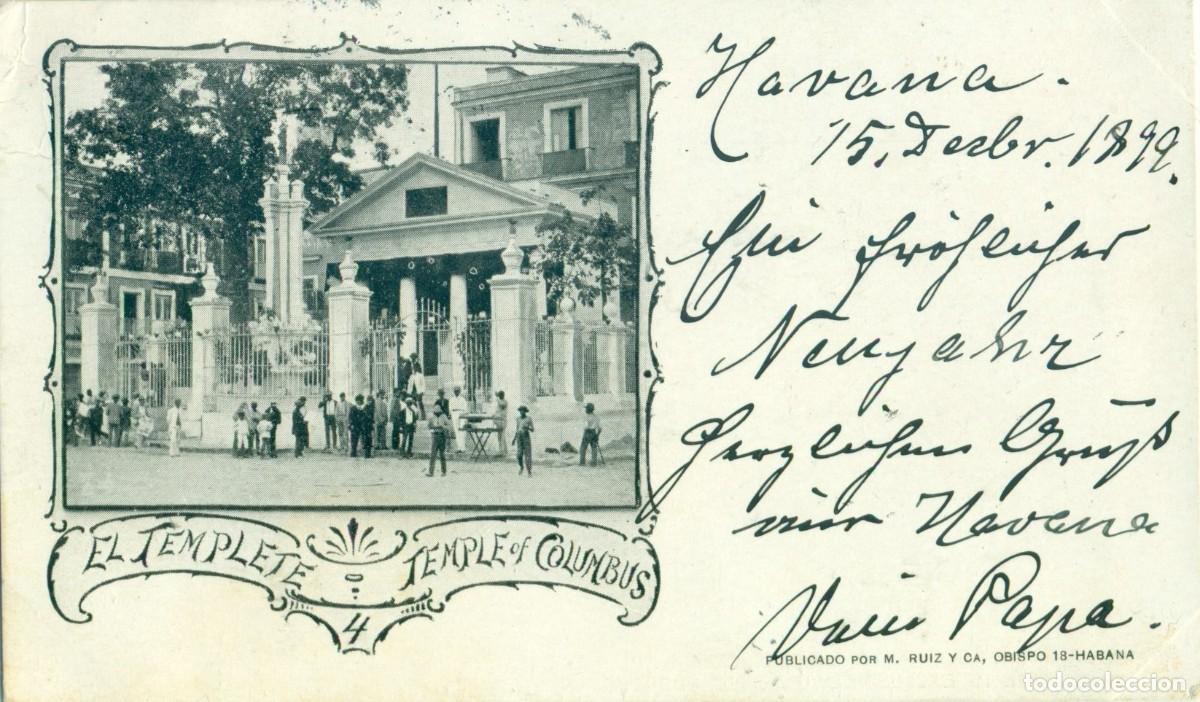 Havana.
15. Dezbr. 1899.
Ein fröhliches
Neujahr
Herzlichen Gruß
aus Havana
Dein Papa.
EL TEMPLETE
TEMPLE of COLUMBUS
4
PUBLICADO POR M. RUIZ Y CA, OBISPO 18-HABANA
todocoleccion